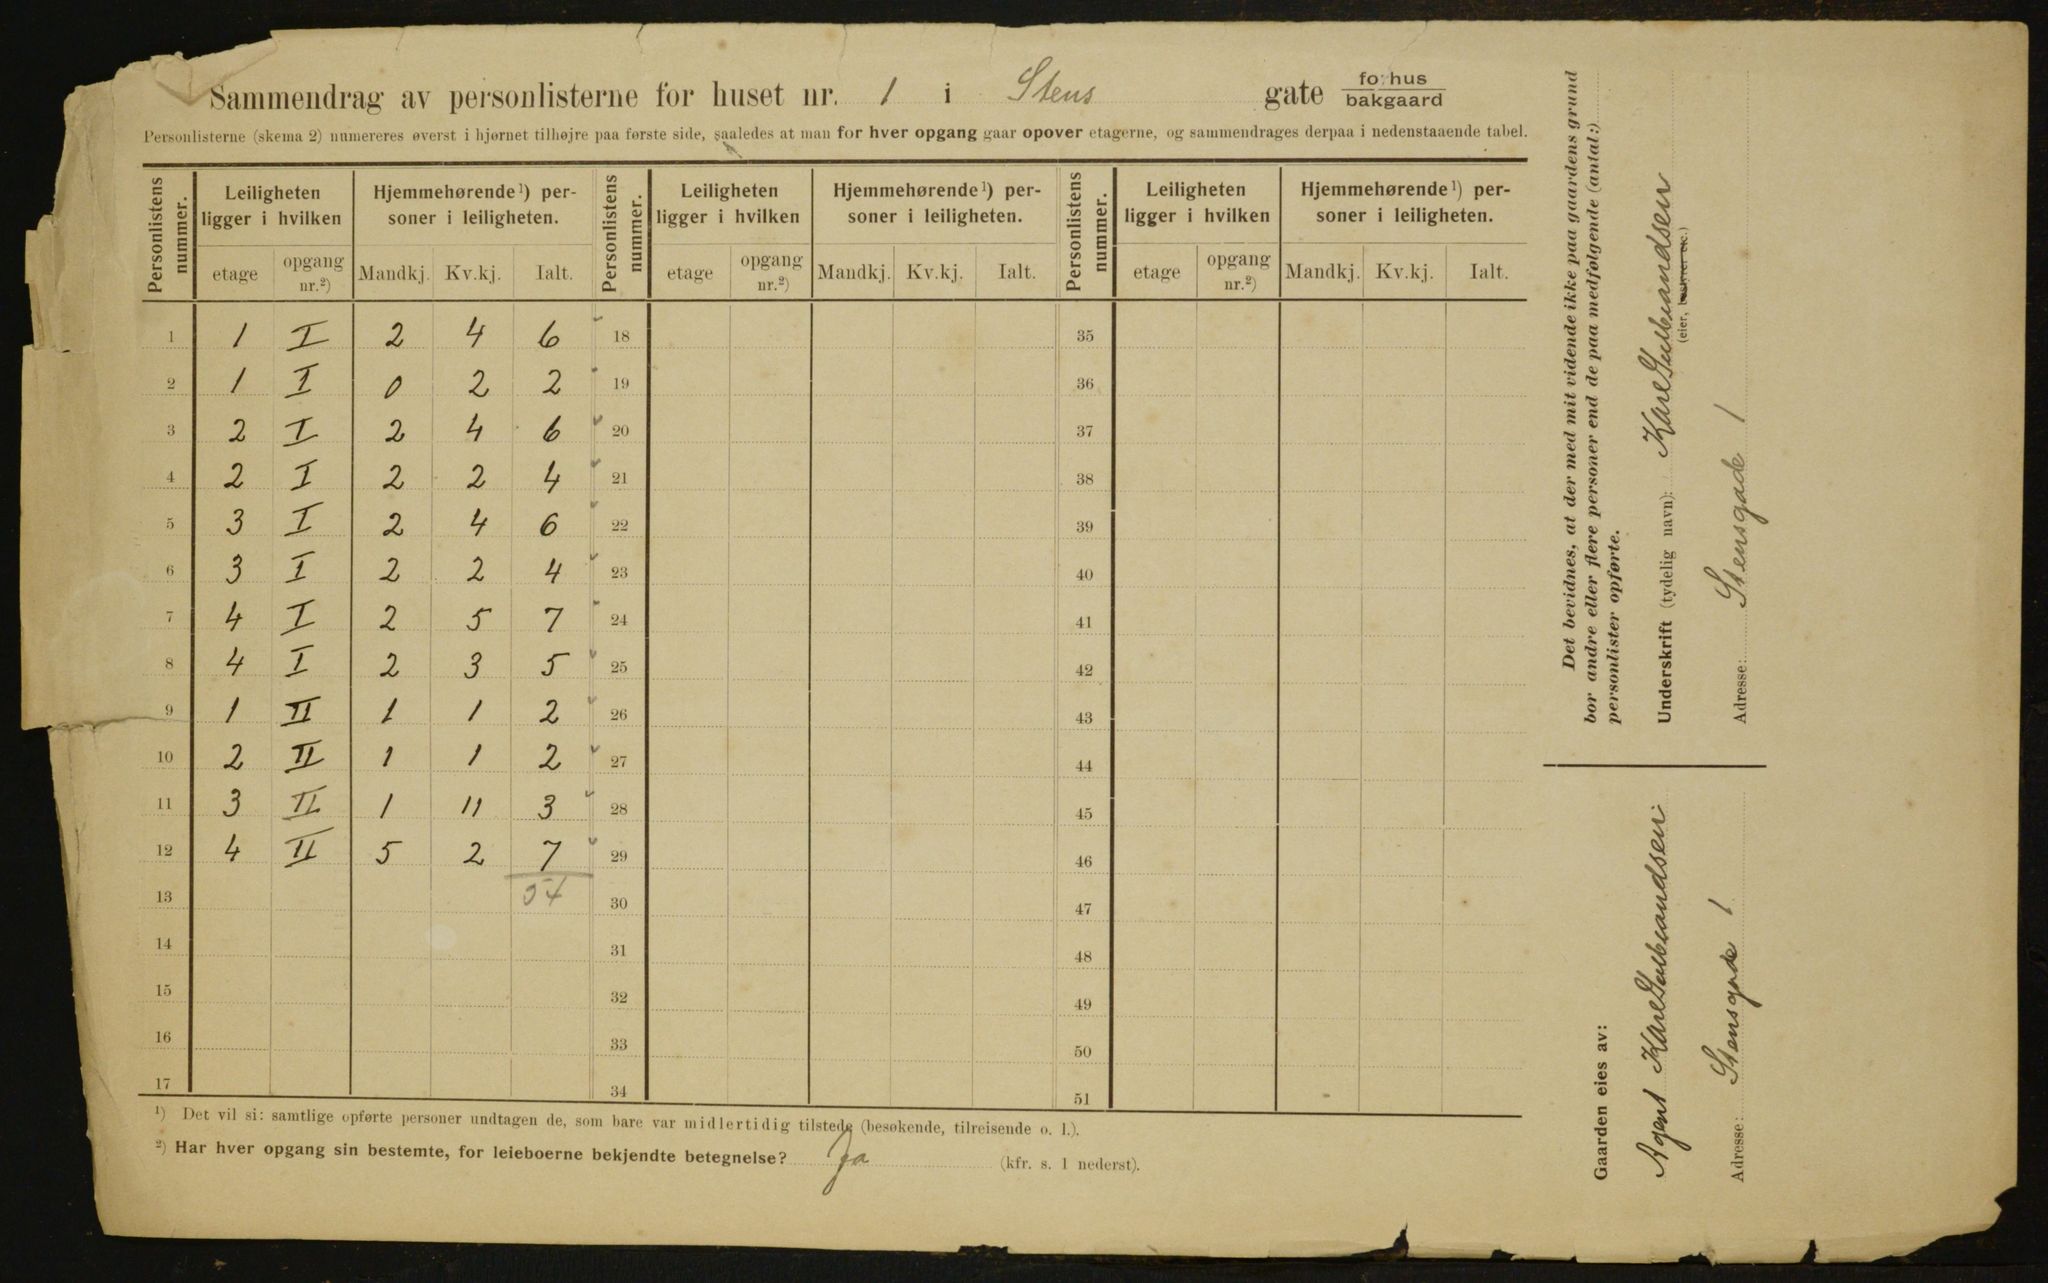 Sammendrag av personlisterne for huset nr. 1 i Stens gate forhus
bakgaard
Personlisterne (skema 2) numereres øverst i hjørnet tilhøjre paa første side, saaledes at man for hver opgang gaar opover etagerne, og sammendrages derpaa i nedenstaaende tabel.
Personlistens nummer. Leiligheten ligger i hvilken Hjemmehørende¹) personer i leiligheten. Personlistens nummer. Leiligheten ligger i hvilken Hjemmehørende¹) personer i leiligheten. Personlistens nummer. Leiligheten ligger i hvilken Hjemmehørende¹) personer i leiligheten.
etage opgang nr.²) Mandkj. Kv.kj. Ialt. etage opgang nr.²) Mandkj. Kv.kj. Ialt. etage opgang nr.²) Mandkj. Kv.kj. Ialt.
1 1 I 2 4 6 18 35
2 1 I 0 2 2 19 36
3 2 I 2 4 6 20 37
4 2 I 2 2 4 21 38
5 3 I 2 4 6 22 39
6 3 I 2 2 4 23 40
7 4 I 2 5 7 24 41
8 4 I 2 3 5 25 42
9 1 II 1 1 2 26 43
10 2 II 1 1 2 27 44
11 3 II 1 11 3 28 45
12 4 II 5 2 7 29 46
13 54 30 47
14 31 48
15 32 49
16 33 50
17 34 51
¹) Det vil si: samtlige opførte personer undtagen de, som bare var midlertidig tilstede (besøkende, tilreisende o. l.).
²) Har hver opgang sin bestemte, for leieboerne bekjendte betegnelse? Ja (kfr. s. 1 nederst).
Det bevidnes, at der med mit vidende ikke paa gaardens grund
bor andre eller flere personer end de paa medfølgende (antal:)
personlister opførte.
Underskrift (tydelig navn): Karl Gulbrandsen
(eier, bestyrer etc.)
Adresse: Stensgade 1
Gaarden eies av:
Agent Karl Gulbrandsen
Adresse: Stensgade 1